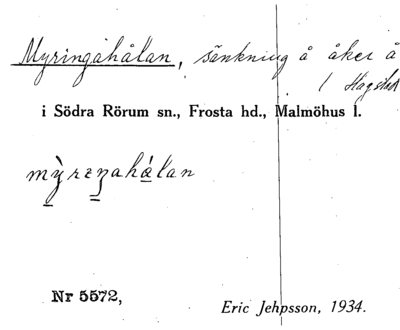 Myringåhålan, sänkning å åker å
1 Hägstad
i Södra Rörum sn., Frosta hd., Malmöhus l.
mỳrɛŋahálan
Nr 5572,
Eric Jehpsson, 1934.